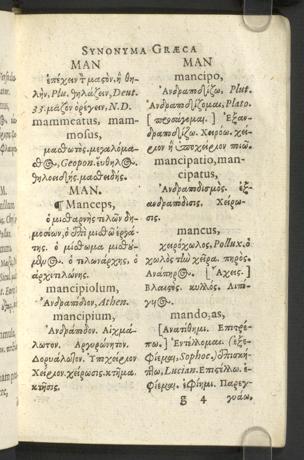 SYNONYMA GRÆCA
MAN
ἐπέχειν τ μαςὸν, ἢ θη-
λήν, Plut. θηλάζειν, Deut.
33. μάζον ὀρέγειν, N.D.
mammeatus, mam-
mosus,
μαςθωτὸς, μεγαλόμα-
Geopon.
MAN.
¶ Manceps,
ὁ μισθαρνὴς τελῶν δη-
μοσίων, ὁ ἐπὶ μισθῷ ἐργά-
της. ὁ
ὁ τελωνάρχης, ὁ
ἀρχιτελώνης.
mancipiolum,
Ἀνδραπόδιον, Athen.
mancipium,
Ἀνδράποδον. Αἰχμά-
λωτον. Ἀργυρώνητον.
Δορυάλωτον. Ὑποχείριον
Χείριον. χείρωσις. κτῆμα.
κτῆσις.
MAN
mancipo,
Ἀνδραποδίζω, Plut.
Ἀνδραποδίζομαι, Plato.
Ἐξαν-
δραποδίζω. Χειρόω. χεί-
ριον ἢ ὑποχείριον ποιῶ.
mancipatio, man-
cipatus,
Ἀνδραποδισμός. ἐξ-
ανδραπόδισις. Χείρω-
σις.
mancus,
χειρόχωλος, Pollux. ὁ
χωλὸς τὼ χεῖρα. πηρός.
Ἀνάπηρος. [Ἄχεις.]
Βλαισός. κυλλός. Λιπό-
mando, as,
[Ἀνατίθημι. Ἐπιτρέ-
πω.] Ἐντέλλομαι. (ἐξε-
φίεμαι, Sophoc.) Ἐπισκή-
πτω, Lucian. Ἐπιςέλλω. ἐ-
φίεμαι. ἐφίημι. Παρεγ-
g 4
γυάω,